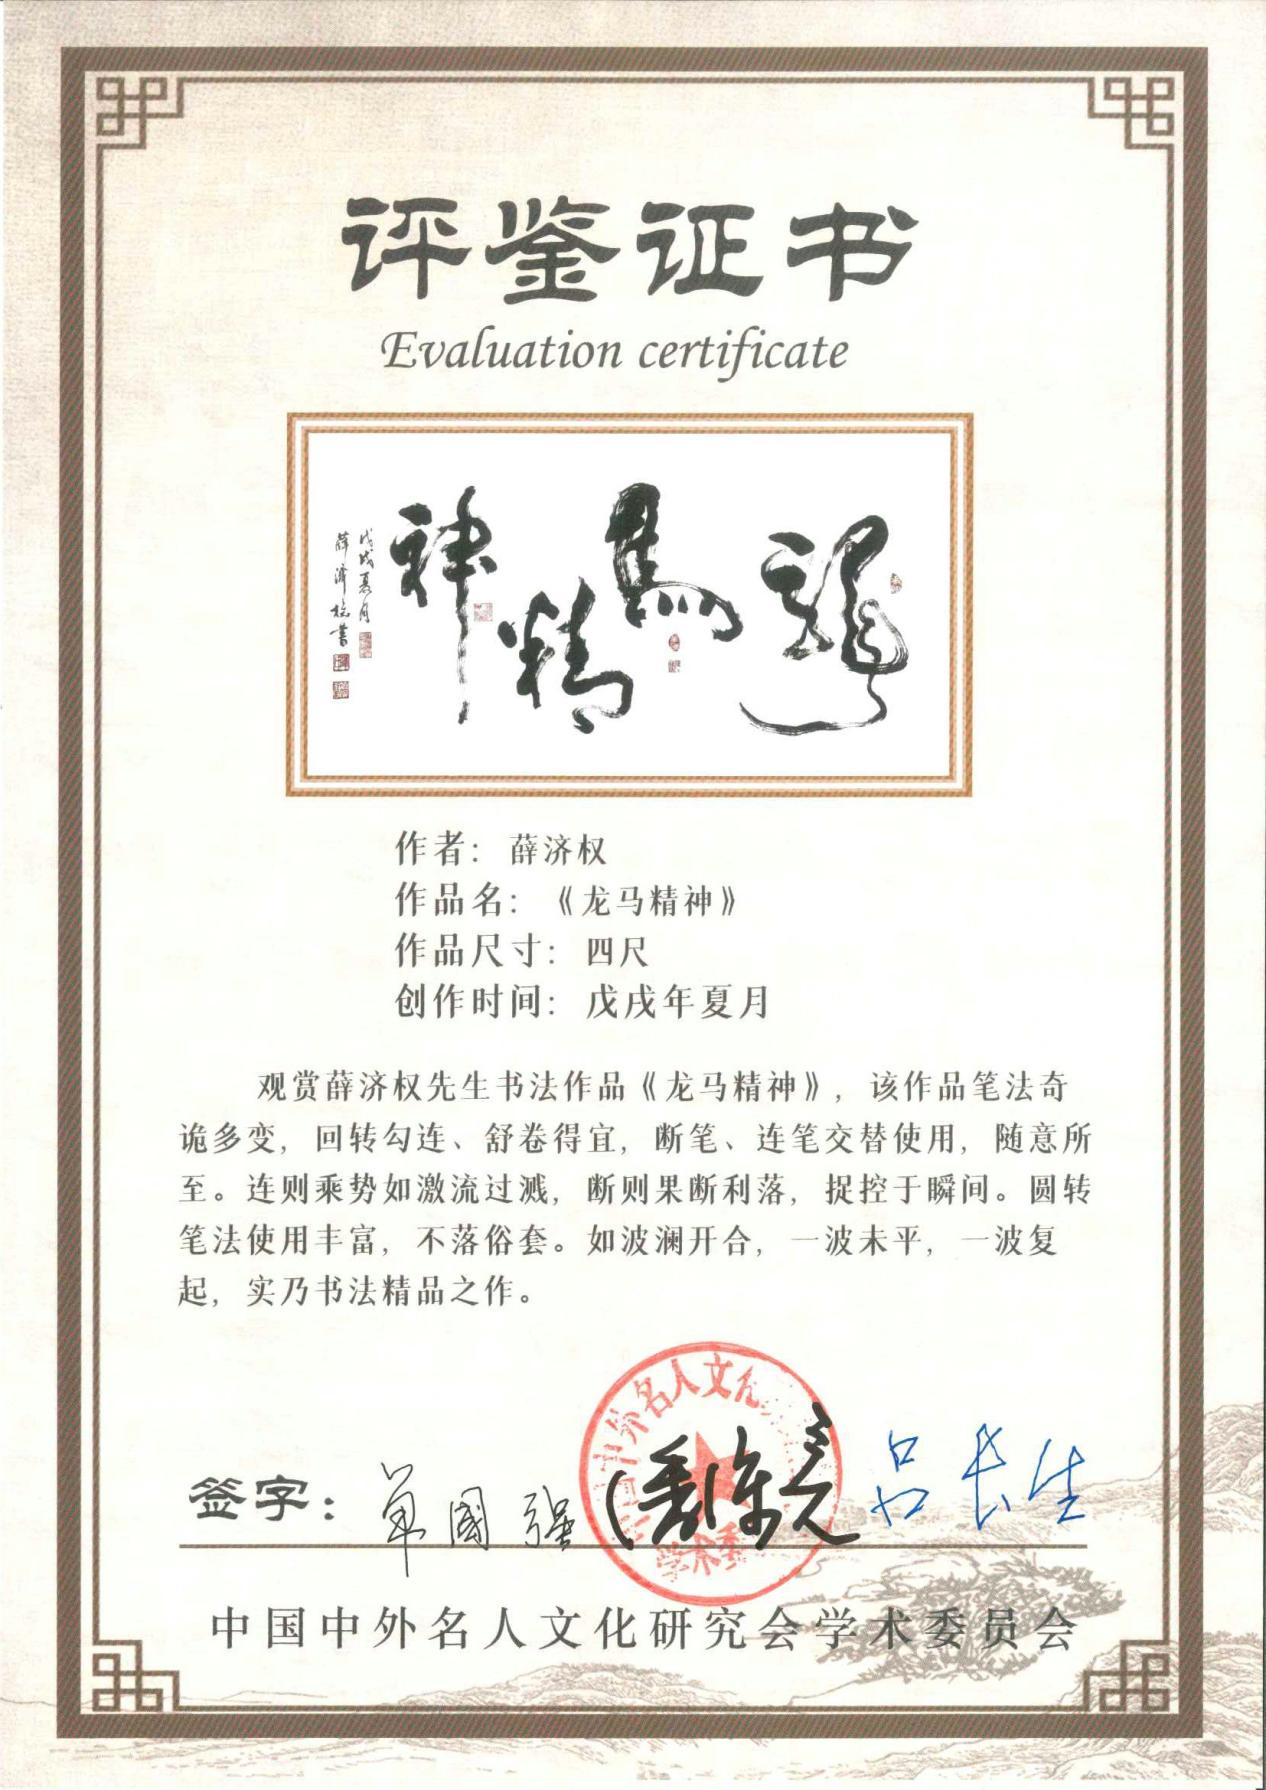 评鉴证书
Evaluation certificate
龍馬精神
戊戌夏月
薛濟權書
作者：薛济权
作品名：《龙马精神》
作品尺寸：四尺
创作时间：戊戌年夏月
观赏薛济权先生书法作品《龙马精神》，该作品笔法奇
诡多变，回转勾连、舒卷得宜，断笔、连笔交替使用，随意所
至。连则乘势如激流过溅，断则果断利落，捉控于瞬间。圆转
笔法使用丰富，不落俗套。如波澜开合，一波未平，一波复
起，实乃书法精品之作。
中外名人文化
学术委
签字：单國强 吕长生
中国中外名人文化研究会学术委员会